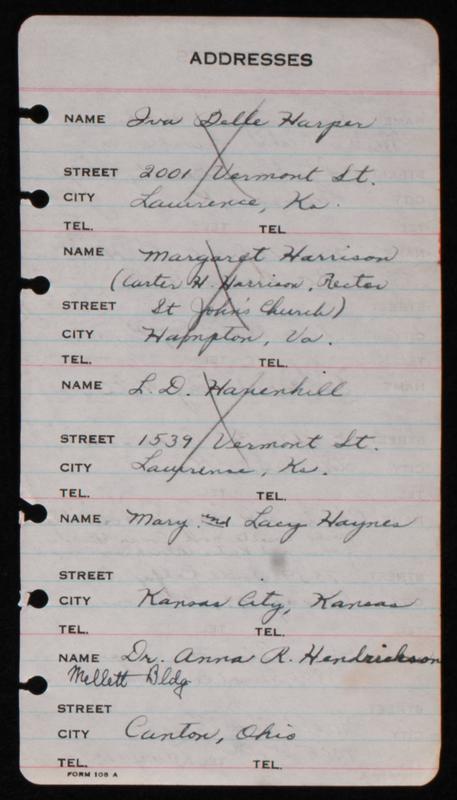 ADDRESSES
NAME Iva Belle Harper
STREET 2001 Vermont St.
CITY Lawrence, Ks.
TEL. TEL
NAME Margaret Harrison
(Carter H. Harrison, Rector
STREET St John's Church)
CITY Hampton, Va.
TEL. TEL.
NAME L. D. Havenhill
STREET 1539 Vermont St.
CITY Lawrence, Ks.
TEL. TEL.
NAME Mary and Lacy Haynes
STREET
CITY Kansas City, Kansas
TEL. TEL.
NAME Dr. Anna R. Hendrickson
Mellett Bldg
STREET
CITY Canton, Ohio
TEL. TEL.
FORM 108 A